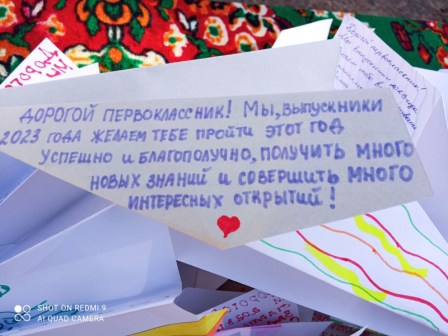 ДОРОГОЙ ПЕРВОКЛАССНИК! МЫ, ВЫПУСКНИКИ
2023 ГОДА ЖЕЛАЕМ ТЕБЕ ПРОЙТИ ЭТОТ ГОД
УСПЕШНО И БЛАГОПОЛУЧНО, ПОЛУЧИТЬ МНОГО
НОВЫХ ЗНАНИЙ И СОВЕРШИТЬ МНОГО
ИНТЕРЕСНЫХ ОТКРЫТИЙ!
Дорогой первоклассник!
SHOT ON REDMI 9
AI QUAD CAMERA